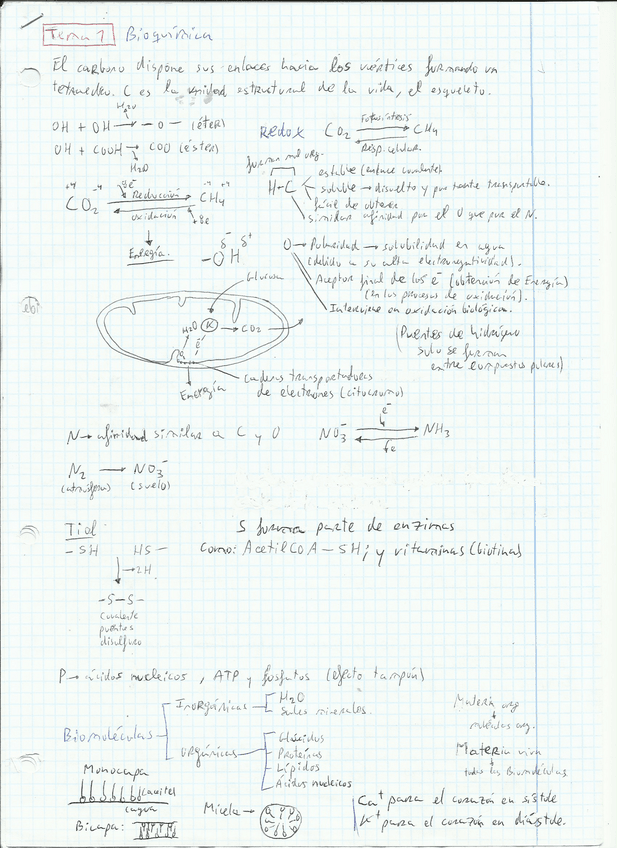 Tema 1 Bioquímica
El carbono dispone sus enlaces hacia los vértices formando un
tetraedro. C es la unidad estructural de la vida, el esqueleto.
H₂O
OH + OH → — O — (éter)
OH + COOH → COO (éster)
H₂O
Redox CO₂ CH₄
Fotosíntesis
Resp. celular.
forman mol org.
H-C
estable (enlace covalente)
soluble → disuelto y por tanto transportable.
fácil de obtener
similar afinidad por el O que por el N.
+4 -4 8e⁻ -4 +4
CO₂ Reducción CH₄
oxidación 8e
Energía.
δ⁻ δ⁺
-OH
O → Polaridad → solubilidad en agua
(debido a su alta electronegatividad).
Aceptor final de los e⁻ (obtención de Energía)
(en los procesos de oxidación).
Interviene en oxidación biológica.
(Puentes de hidrógeno
solo se forman
entre compuestos polares)
Glucosa
H₂O K → CO₂
e⁻
Energía
Cadenas transportadoras
de electrones (citocromo)
N → afinidad similar a C y O
NO₃⁻ NH₃
e⁻
e
N₂ → NO₃⁻
(atmósfera) (suelo)
Tiol
-SH HS-
→2H
-S-S-
Covalente
puentes
disulfuro
S forma parte de enzimas
como: AcetilCoA-SH; y vitaminas (biotina)
P → ácidos nucleicos, ATP y fosfatos (efecto tampón)
Biomoléculas
Inorgánicas
H₂O
Sales minerales.
Orgánicas
Glúcidos
Proteínas
Lípidos
Ácidos nucleicos
Materia org
moléculas org.
Materia viva
todas las Biomoléculas.
Monocapa
agua
Bicapa:
Micela →
Ca⁺ para el corazón en sístole
K⁺ para el corazón en diástole.